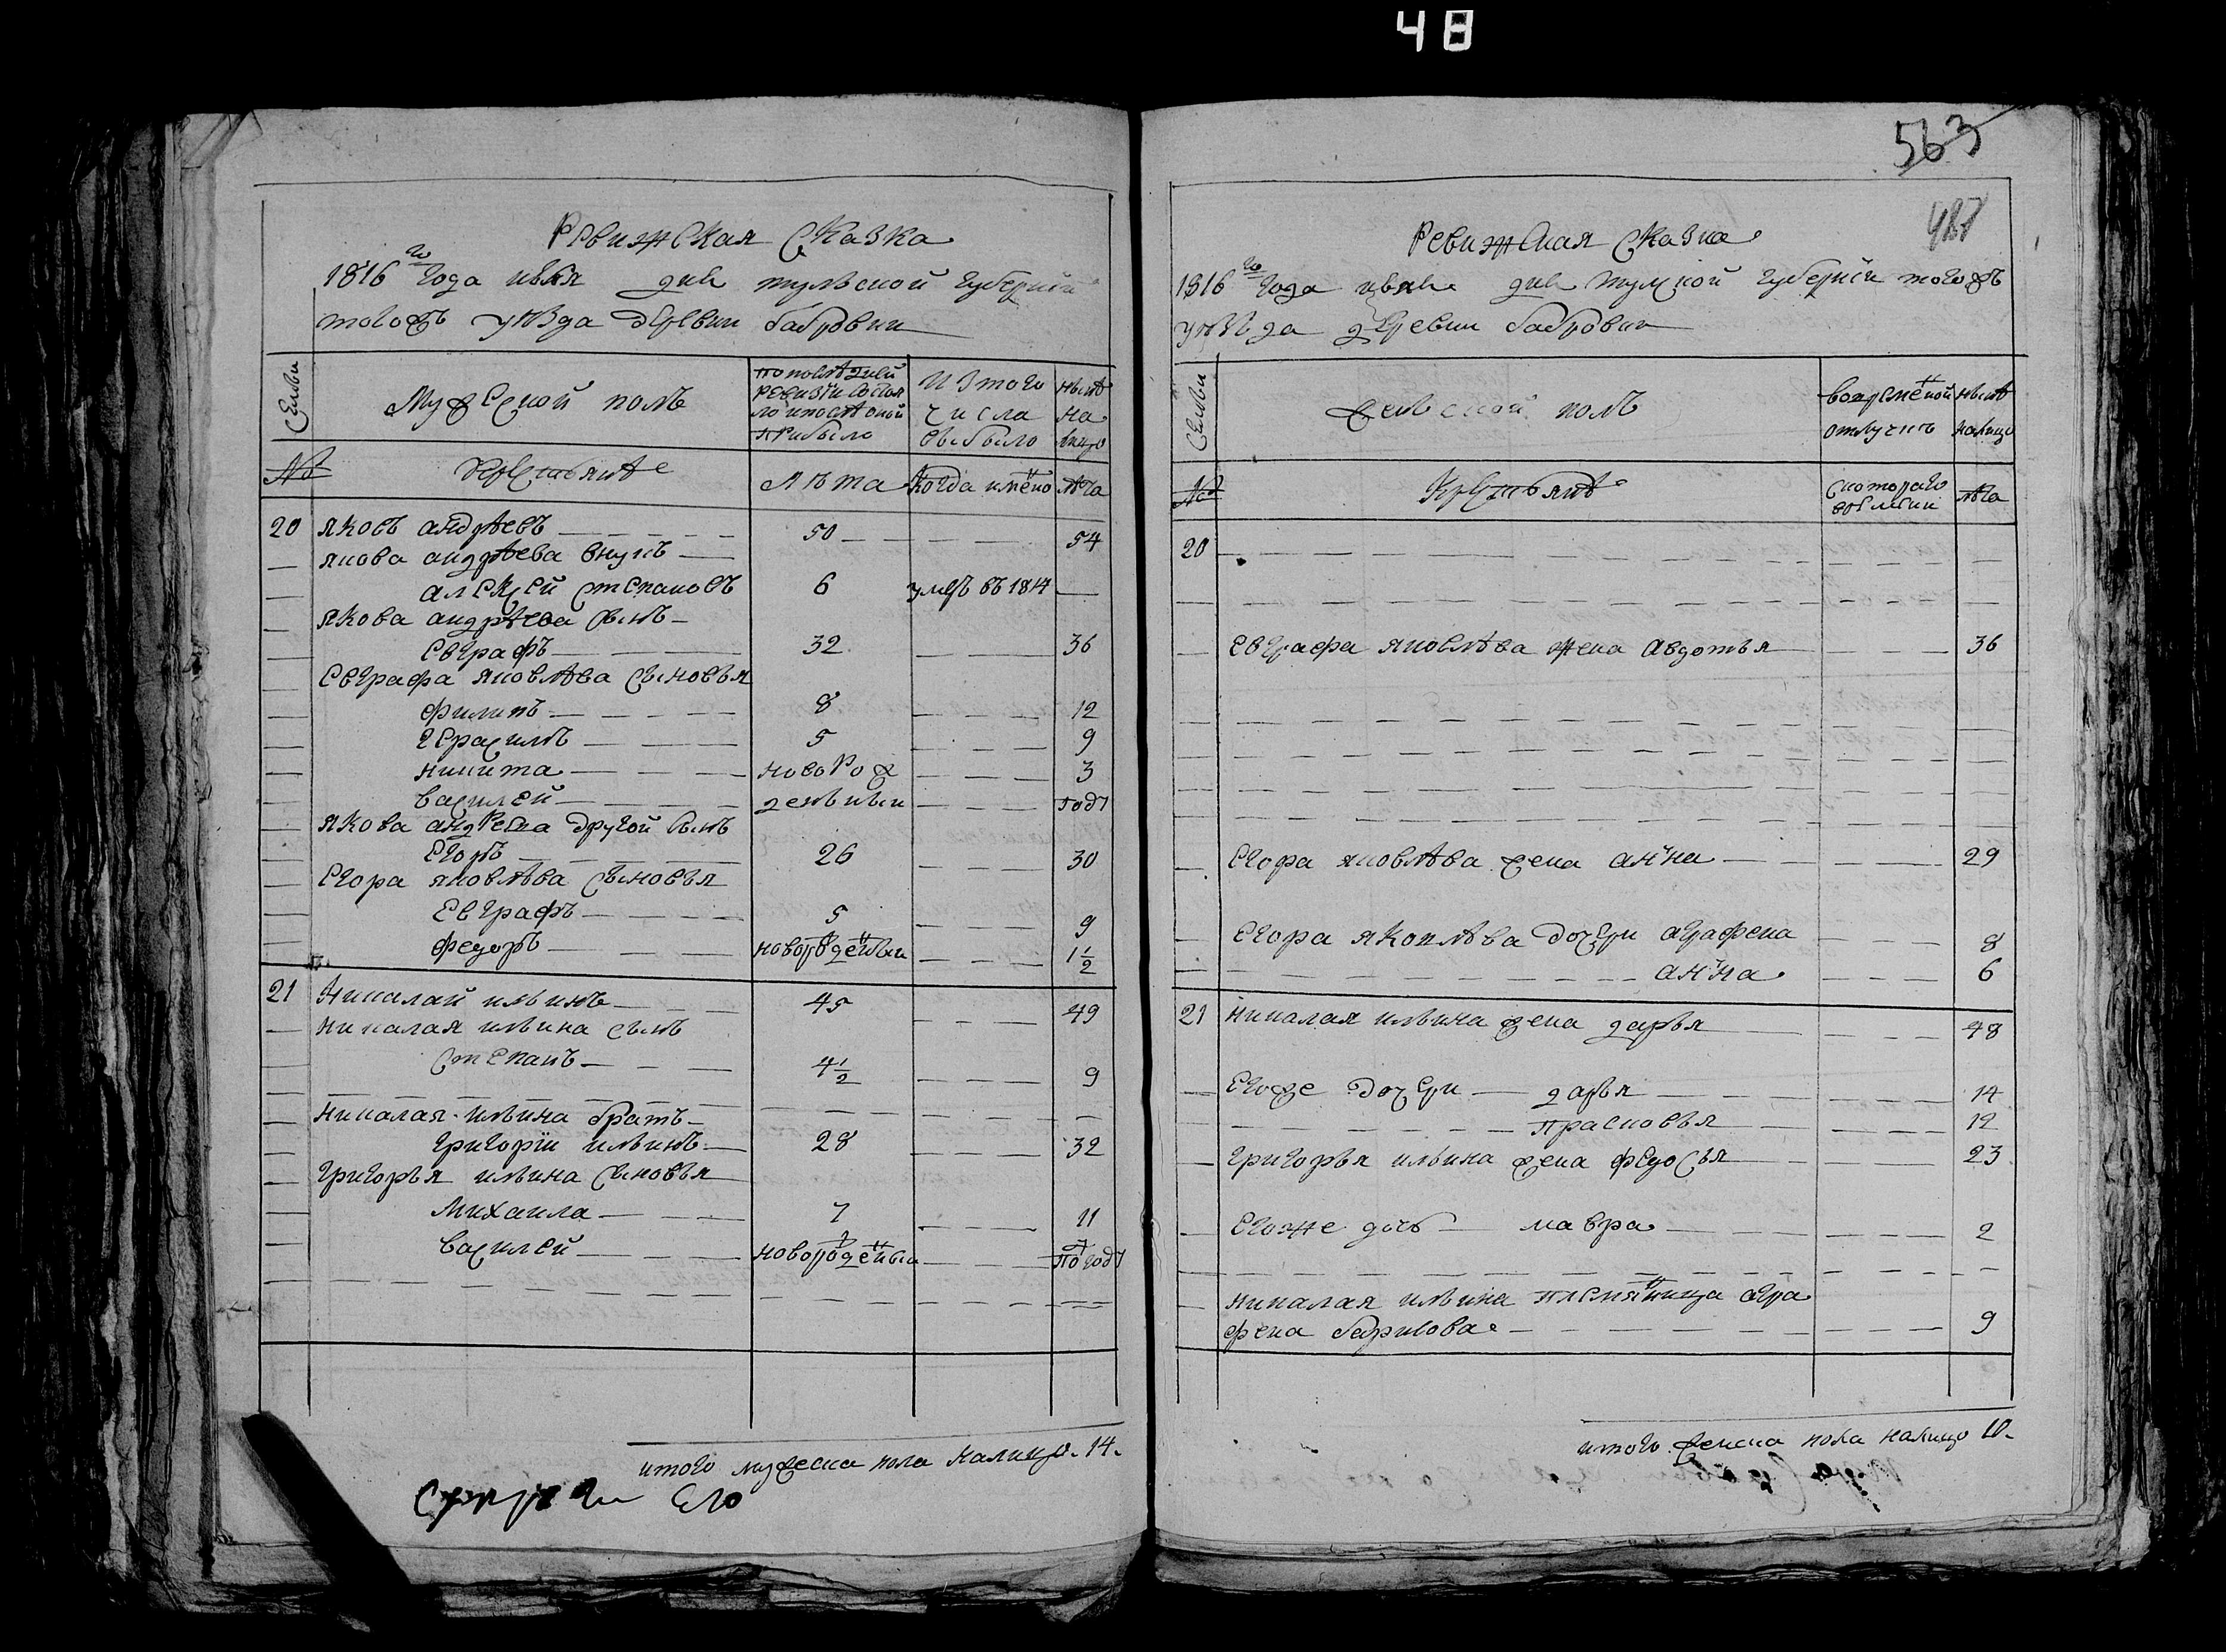 48
563
487
Ревижская Сказка
1816го года июля дня тульской губернии
тогожъ уѣзда деревни бабровки
Семьи
Мужеской полъ
по последней
ревизiи состоя
ло и после оной
прибыло
Изтого
числа
выбыло
нынѣ
на
лицо
№
Крестьянѣ
Лѣта
Когда имено
лѣта
20 яковъ андрѣевъ 50 54
якова андрѣева внукъ
алексей степановъ 6 умеръ въ 1814
якова андрѣева сынъ
евграфъ 32 36
евграфа яковлѣва сыновья
филипъ 8 12
герасимъ 5 9
никита новорож 3
василей денныи годъ
якова андрева другой сынъ
егоръ 26 30
егора яковлѣва сыновья
евграфъ 5 9
федоръ новорожденныи 1 1/2
21 николай ильинъ 45 49
николая ильина сынъ
степанъ 4 1/2 9
николая ильина братъ
григорiи ильинъ 28 32
григорья ильина сыновья
михаила 7 11
василей новорожденыи полгодъ
итого мужеска пола налицо 14.
его
Ревижская сказка
1816го года июля дня тулской губернiи тогожъ
уѣзда деревни бабровки
Семьи
женской полъ
вовременой
отлучкѣ
нынѣ
налицо
№
Крестьянѣ
скотораго
времени
лѣта
20
евграфа яковлѣва жена авдотья 36
егора яковлѣва жена анна 29
егора яковлѣва дочери аграфена 8
анна 6
21 николая ильина жена дарья 48
егоже дочери дарья 14
прасковья 12
григорья ильина жена федосья 23
егоже дочь мавра 2
николая ильина племянница агра
фена 9
итого женска пола налицо 10.